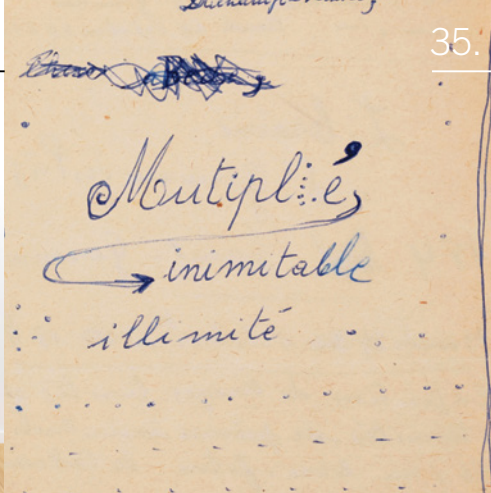 35.
Mutiplié
inimitable
illimité